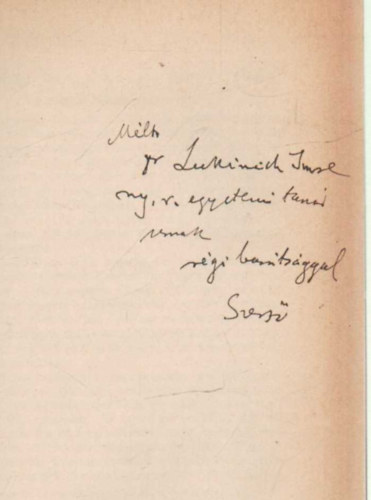 Mélt.
dr Lukinich Imre
ny. r. egyetemi tanár
urnak
régi barátsággal
Szerző